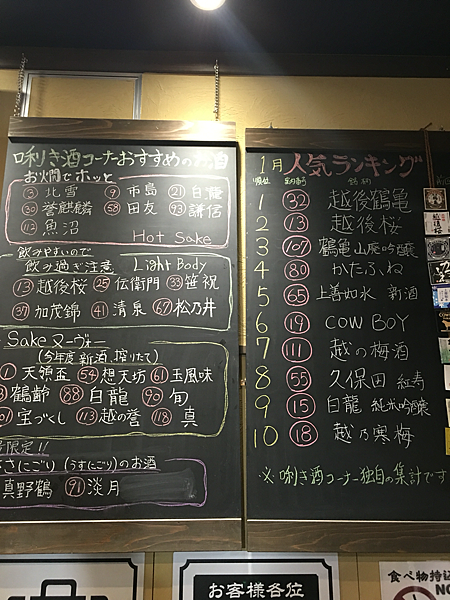 唎き酒コーナーおすすめのお酒
お燗でホッと
③北雪 ⑨市島 ㉑白龍
㉚誉麒麟 58田友 93謙信
112魚沼 Hot Sake
飲みやすいので
飲み過ぎ注意 Light Body
⑬越後桜 ㉕伝衛門 ㉝笹祝
㊲加茂錦 ㊶清泉 67松乃井
Sake ヌーヴォー
(今年度新酒、搾りたて)
①天領盃 54想天坊 61玉風味
鶴齢 88白龍 90旬
01宝づくし 113越の誉 118真
限定!!
ささにごり(うすにごり)のお酒
真野鶴 91淡月
1月人気ランキング
順位 案内番号 銘柄
1 32 越後鶴亀
2 13 越後桜
3 107 鶴亀 山廃吟醸
4 80 かたふね
5 65 上善如水 新酒
6 19 COW BOY
7 111 越の梅酒
8 55 久保田 紅寿
9 15 白龍 純米吟醸
10 18 越乃寒梅
※唎き酒コーナー独自の集計です
お客様各位
食べ物持込
NO